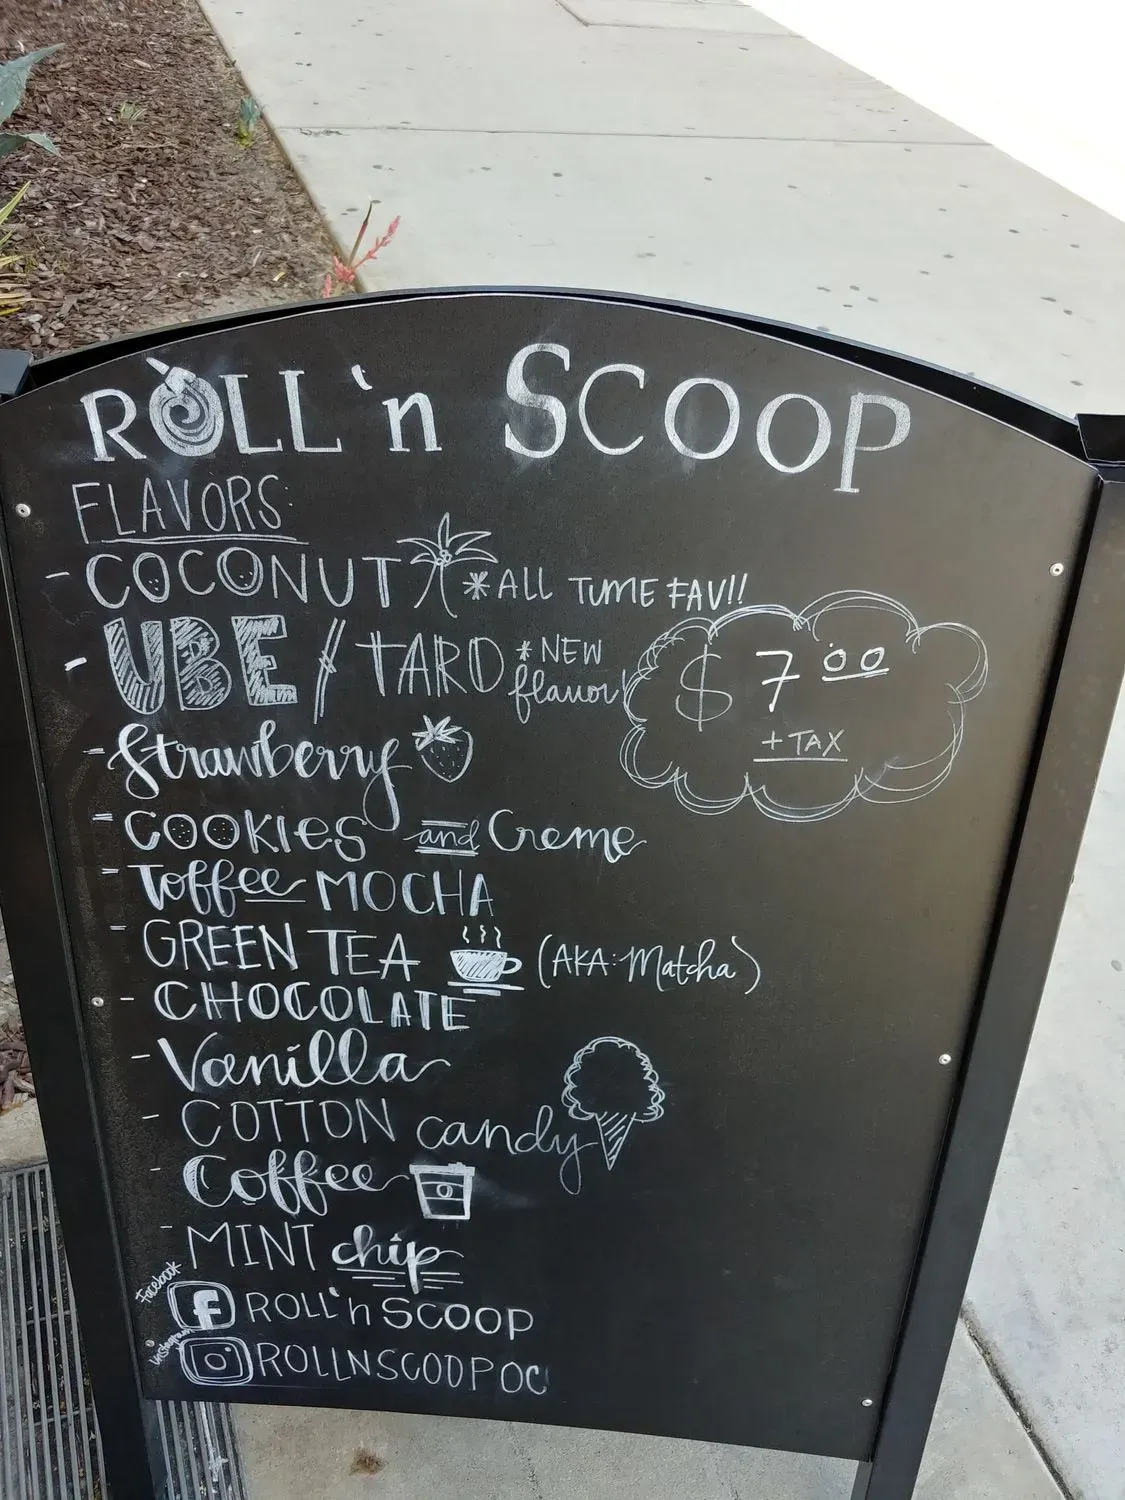 ROLL 'n SCOOP
FLAVORS:
- COCONUT *ALL TIME FAV!!
- UBE / TARO *NEW flavor
$7.00
+ TAX
- Strawberry
- COOKIES and Creme
- Toffee MOCHA
- GREEN TEA (AKA: Matcha)
- CHOCOLATE
- Vanilla
- COTTON candy
- Coffee
- MINT chip
Facebook
ROLL'n SCOOP
Instagram
ROLLNSCOOPOC